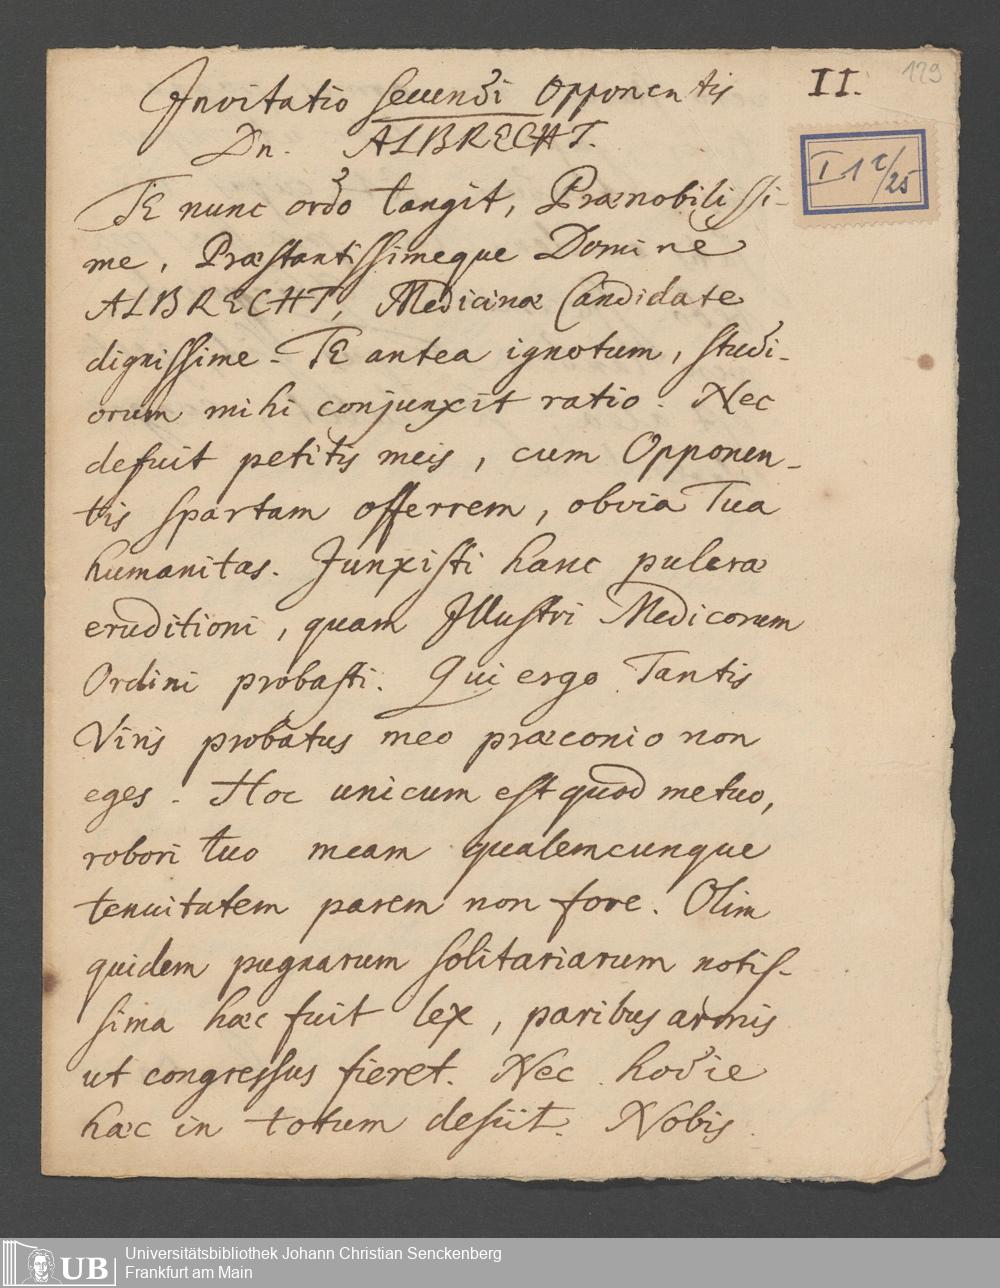 Invitatio secundi Opponentis
II.
129
Dn. ALBRECHT.
I 1 c/25
TE nunc ordo tangit, Prænobilissi-
me, Præstantissimeque Domine
ALBRECHT, Medicinæ Candidate
dignissime. TE antea ignotum, studi-
orum mihi conjunxit ratio. Nec
defuit petitis meis, cum Opponen-
tis spartam offerrem, obvia Tua
humanitas. Junxisti hanc pulcræ
eruditioni, quam Illustri Medicorum
Ordini probasti. Qui ergo Tantis
Viris probatus meo præconio non
eges. Hoc unicum est quod metuo,
robori tuo meam qualemcunque
tenuitatem parem non fore. Olim
quidem pugnarum solitariarum notis-
sima hæc fuit lex, paribus armis
ut congressus fieret. Nec hodie
hæc in totum desiit. Nobis
UB
Universitätsbibliothek Johann Christian Senckenberg
Frankfurt am Main